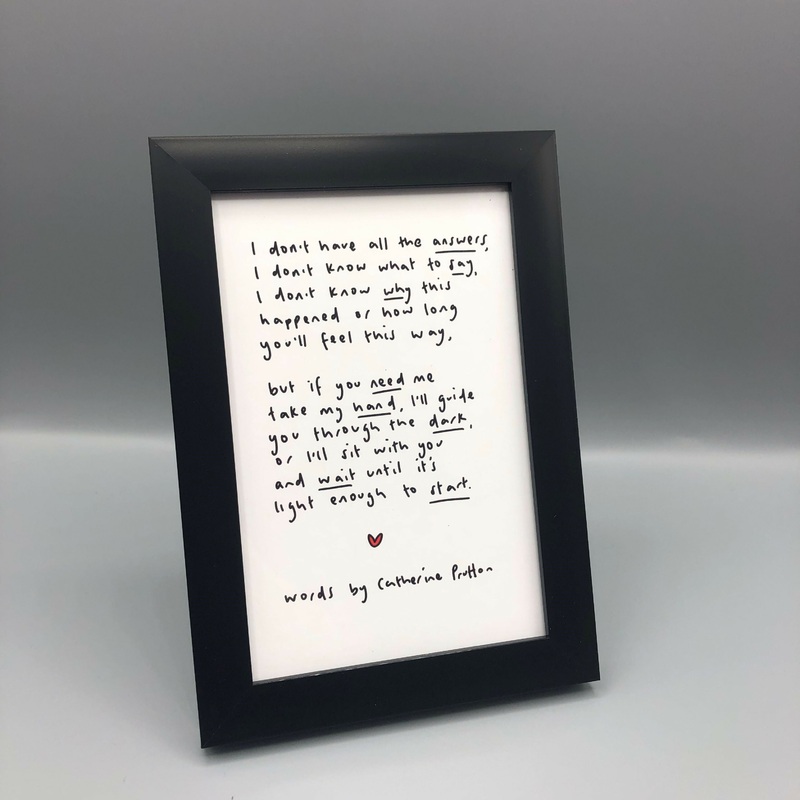 I don't have all the answers,
I don't know what to say,
I don't know why this
happened or how long
you'll feel this way,
but if you need me
take my hand, I'll guide
you through the dark,
or I'll sit with you
and wait until it's
light enough to start.
words by Catherine Prutton